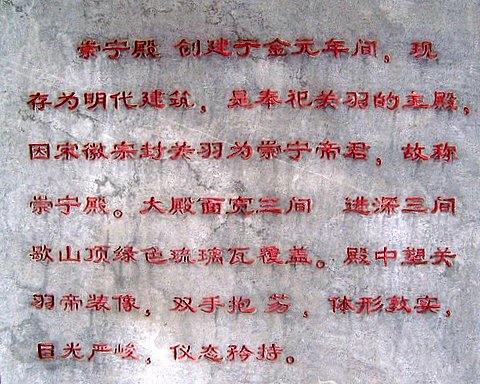 崇宁殿 创建于金元年间，现
存为明代建筑，是奉祀关羽的主殿，
因宋徽宗封关羽为崇宁帝君，故称
崇宁殿。大殿面宽三间 进深三间
歇山顶绿色琉璃瓦覆盖。殿中塑关
羽帝装像，双手抱 笏，体形敦实，
目光严峻，仪态矜持。